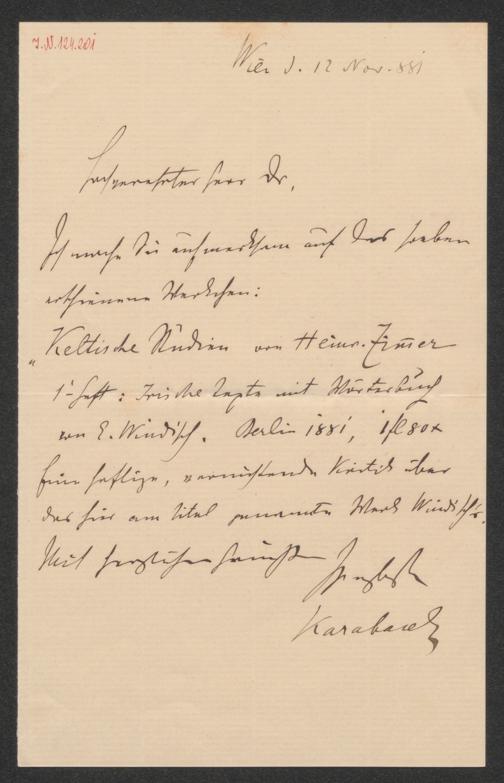 J.N. 124.201
Wien d. 12 Nov. 881
Hochverehrter Herr Dr,
Ich mache Sie aufmerksam auf das soeben
erschienene Werkchen:
"Keltische Studien von Heinr. Zimmer
1. Heft: Irische Texte mit Wörterbuch
von E. Windisch. Berlin 1881, 1 fl 80 x
Eine heftige, vernichtende Kritik über
das hier am Titel genannte Werk Windisch's.
Mit herzlichen Grüßen
Ihr ergebenster
Karabacek